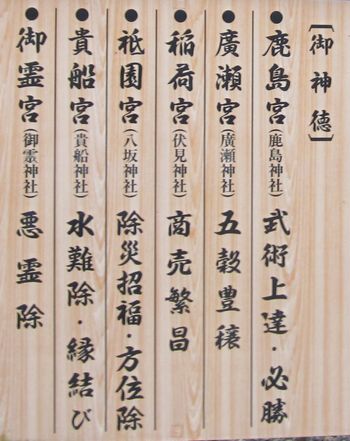 〔御神徳〕
●鹿島宮(鹿島神社)武術上達・必勝
●廣瀬宮(廣瀬神社)五穀豊穣
●稲荷宮(伏見神社)商売繁昌
●祇園宮(八坂神社)除災招福・方位除
●貴船宮(貴船神社)水難除・縁結び
●御霊宮(御霊神社)悪霊除